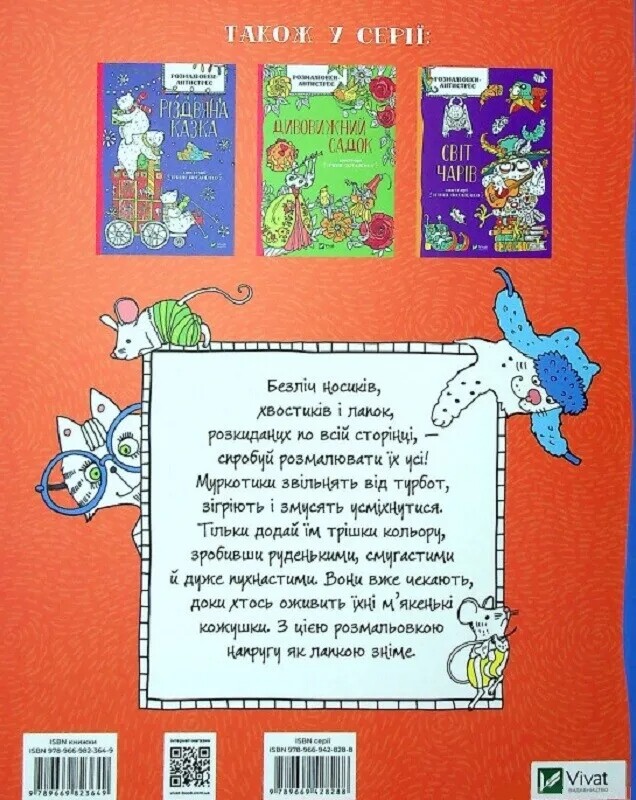 ТАКОЖ У СЕРІЇ:
РОЗМАЛЮВКИ-
АНТИСТРЕС
РІЗДВЯНА
КАЗКА
VIVAT
РОЗМАЛЮВКИ-
АНТИСТРЕС
ДИВОВИЖНИЙ
САДОК
VIVAT
РОЗМАЛЮВКИ-
АНТИСТРЕС
СВІТ
ЧАРІВ
VIVAT
Безліч носиків,
хвостиків і лапок,
розкиданих по всій сторінці, —
спробуй розмалювати їх усі!
Муркотики звільнять від турбот,
зігріють і змусять усміхнутися.
Тільки додай їм трішки кольору,
зробивши руденькими, смугастими
й дуже пухнастими. Вони вже чекають,
доки хтось оживить їхні м’якенькі
кожушки. З цією розмальовкою
напругу як лапкою зніме.
ISBN книжки
ISBN 978-966-982-364-9
9 789669 823649
інтернет-магазин
ISBN серії
ISBN 978-966-942-828-8
9 789669 428288
Vivat
ВИДАВНИЦТВО